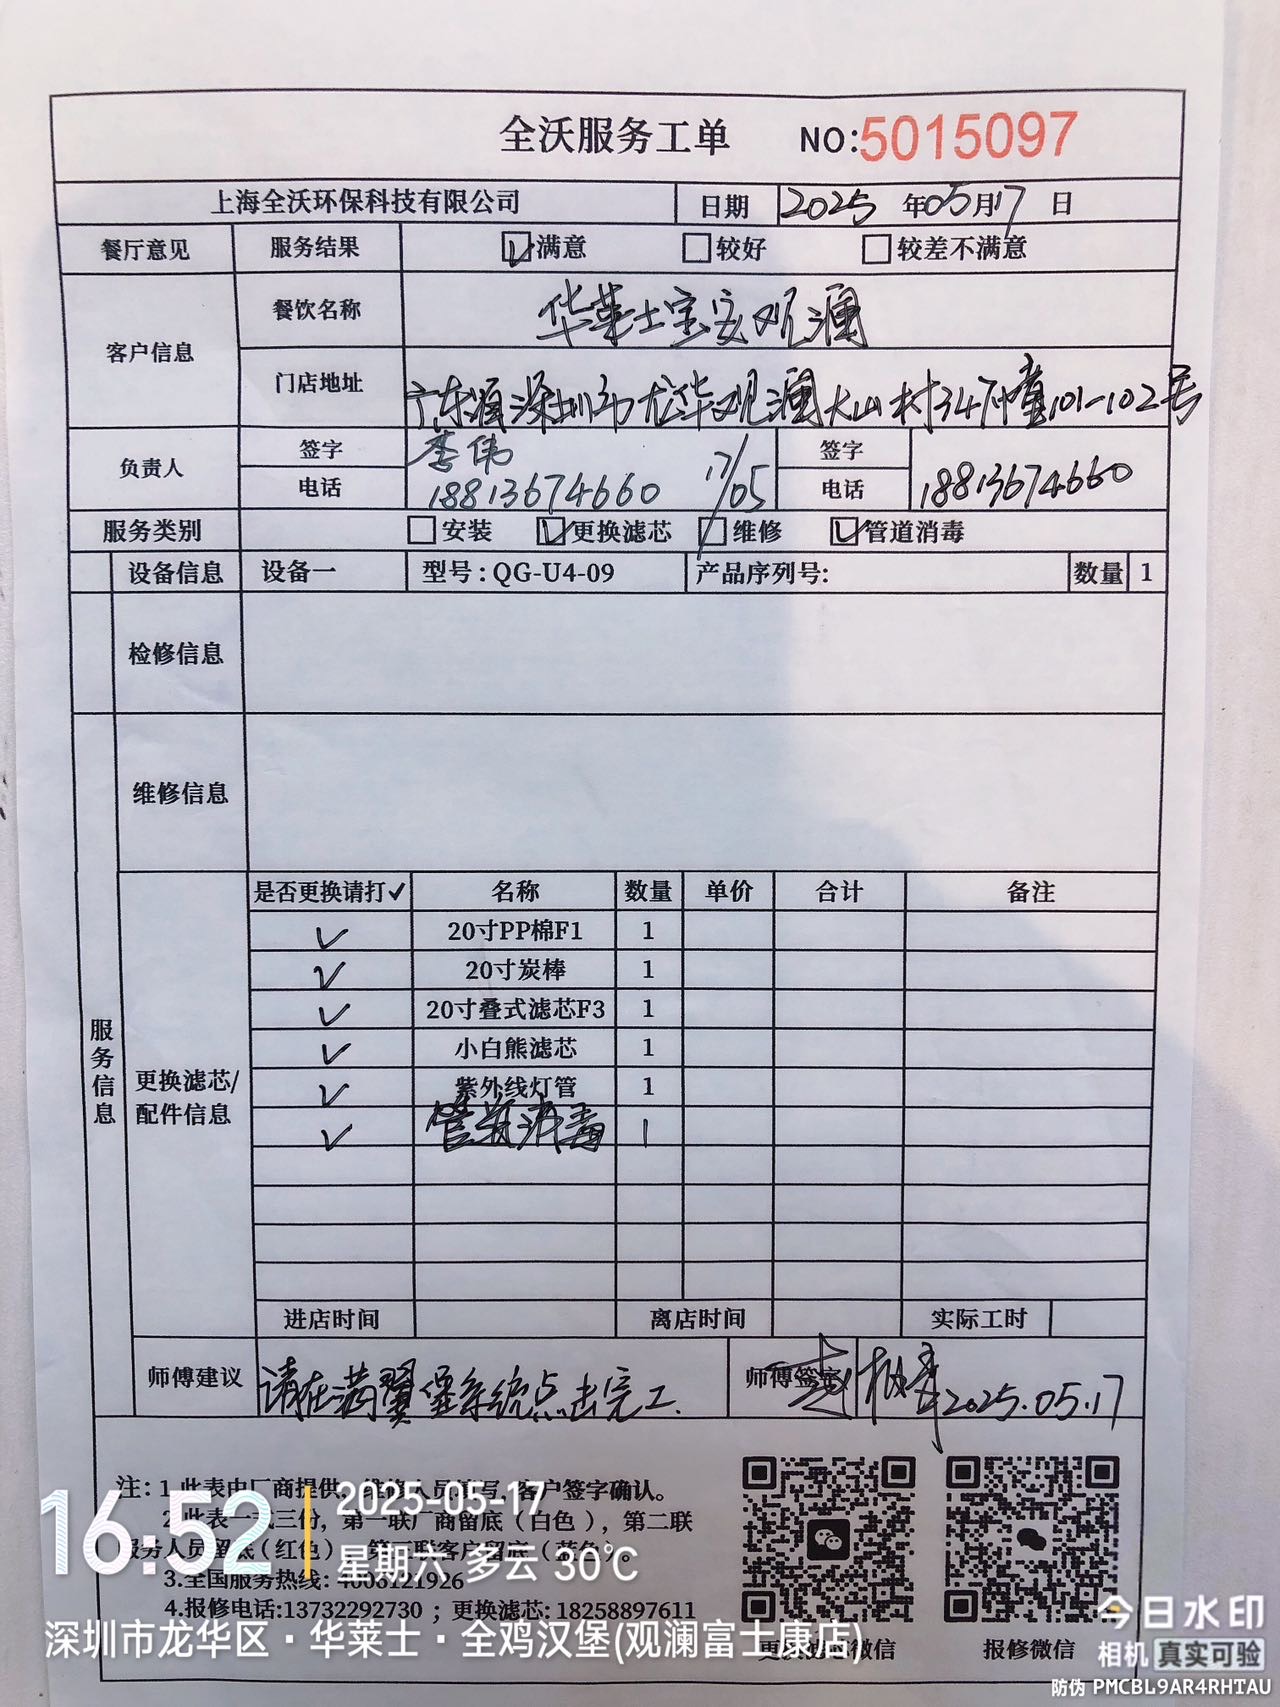 全沃服务工单 NO:5015097
上海全沃环保科技有限公司 日期 2025 年05月17日
餐厅意见 服务结果 满意 较好 较差不满意
客户信息 餐饮名称 华莱士宝安观澜
门店地址 广东省深圳市龙华观澜大山村34栋101-102号
负责人 签字 李伟 17/05 签字
电话 18813674660 电话 18813674660
服务类别 安装 更换滤芯 维修 管道消毒
设备信息 设备一 型号:QG-U4-09 产品序列号: 数量 1
检修信息
维修信息
服务信息
更换滤芯/
配件信息
是否更换请打✓ 名称 数量 单价 合计 备注
✓ 20寸PP棉F1 1
✓ 20寸炭棒 1
✓ 20寸叠式滤芯F3 1
✓ 小白熊滤芯 1
✓ 紫外线灯管 1
✓ 管道消毒 1
进店时间 离店时间 实际工时
师傅建议 请在满翼堡系统点击完工. 师傅签字 2025.05.17
注:1.此表由厂商提供,维修人员填写,客户签字确认。
2.此表一式三份,第一联厂商留底(白色),第二联
服务人员留底(红色),第三联客户留底(蓝色)。
3.全国服务热线:4006121926
4.报修电话:13732292730;更换滤芯:18258897611
更换滤芯微信 报修微信
16:52
2025-05-17
星期六 多云 30℃
深圳市龙华区·华莱士·全鸡汉堡(观澜富士康店)
今日水印
相机 真实可验
防伪 PMCBL9AR4RHTAU